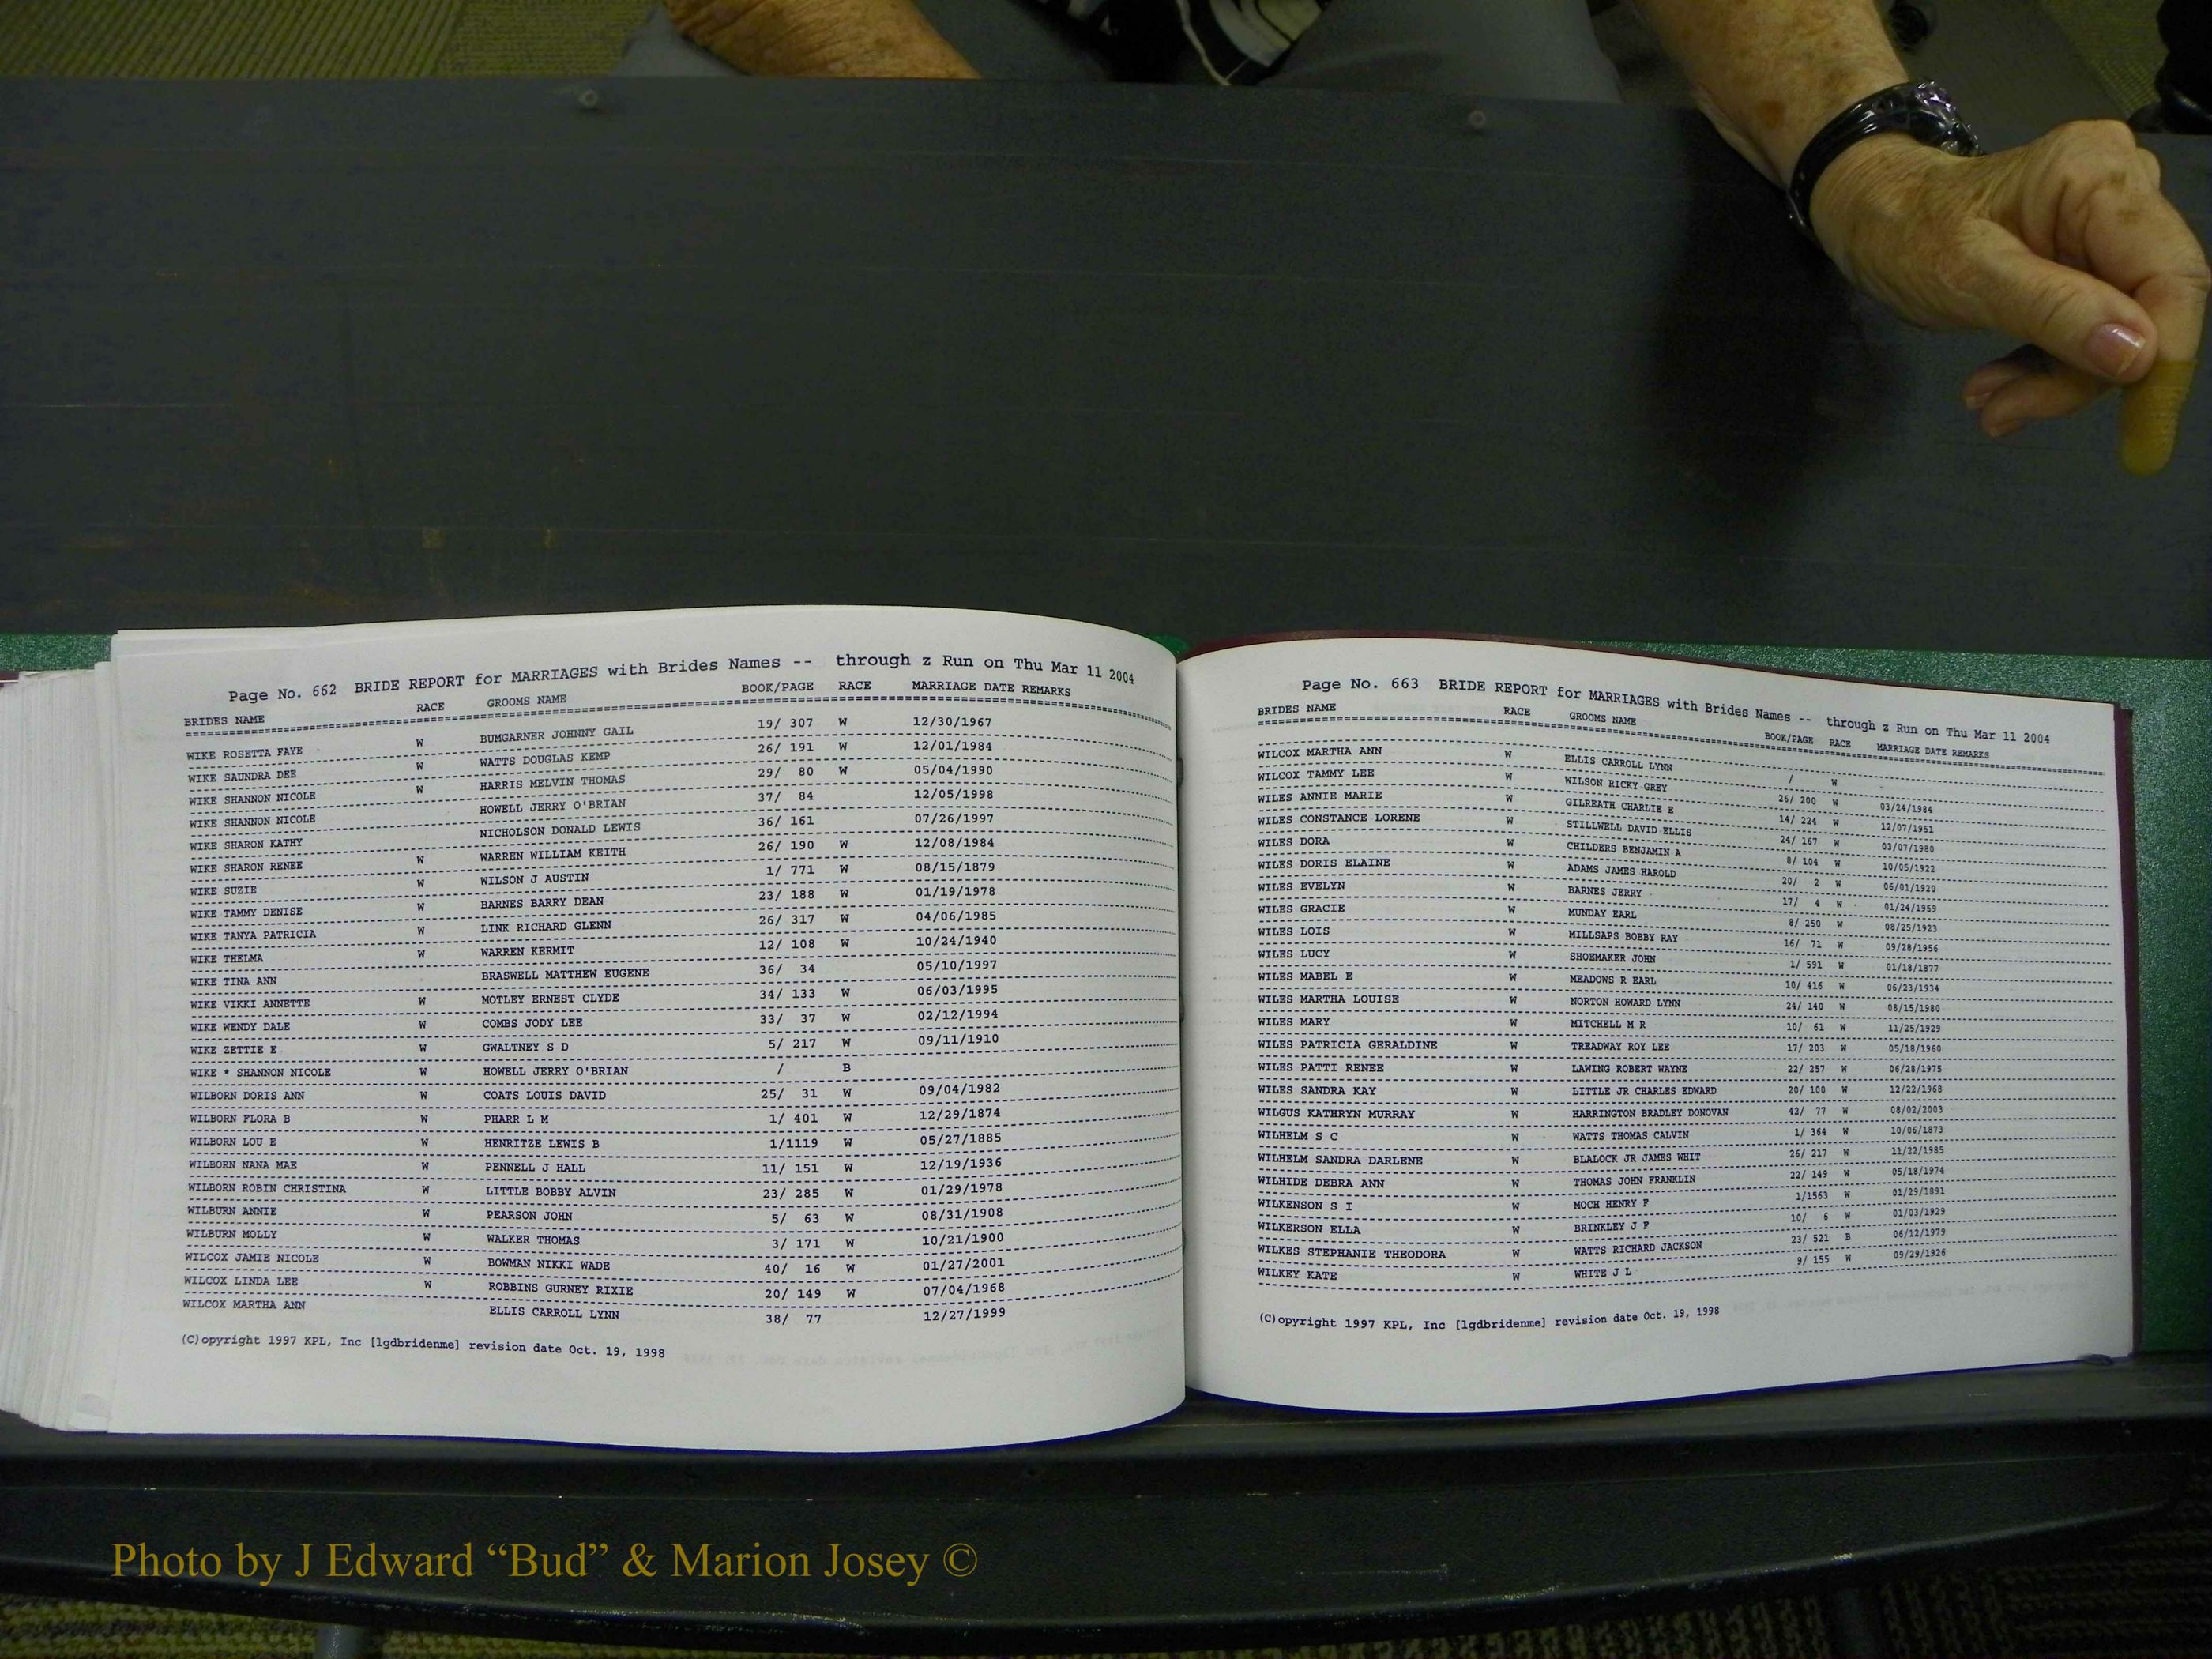 Page No. 662 BRIDE REPORT for MARRIAGES with Brides Names -- through z Run on Thu Mar 11 2004
BRIDES NAME RACE GROOMS NAME BOOK/PAGE RACE MARRIAGE DATE REMARKS
WIKE ROSETTA FAYE W BUMGARNER JOHNNY GAIL 19/ 307 W 12/30/1967
WIKE SAUNDRA DEE W WATTS DOUGLAS KEMP 26/ 191 W 12/01/1984
WIKE SHANNON NICOLE W HARRIS MELVIN THOMAS 29/ 80 W 05/04/1990
WIKE SHANNON NICOLE HOWELL JERRY O'BRIAN 37/ 84 12/05/1998
WIKE SHARON KATHY NICHOLSON DONALD LEWIS 36/ 161 07/26/1997
WIKE SHARON RENEE W WARREN WILLIAM KEITH 26/ 190 W 12/08/1984
WIKE SUZIE W WILSON J AUSTIN 1/ 771 W 08/15/1879
WIKE TAMMY DENISE W BARNES BARRY DEAN 23/ 188 W 01/19/1978
WIKE TANYA PATRICIA W LINK RICHARD GLENN 26/ 317 W 04/06/1985
WIKE THELMA W WARREN KERMIT 12/ 108 W 10/24/1940
WIKE TINA ANN BRASWELL MATTHEW EUGENE 36/ 34 05/10/1997
WIKE VIKKI ANNETTE W MOTLEY ERNEST CLYDE 34/ 133 W 06/03/1995
WIKE WENDY DALE W COMBS JODY LEE 33/ 37 W 02/12/1994
WIKE ZETTIE E W GWALTNEY S D 5/ 217 W 09/11/1910
WIKE * SHANNON NICOLE W HOWELL JERRY O'BRIAN / B
WILBORN DORIS ANN W COATS LOUIS DAVID 25/ 31 W 09/04/1982
WILBORN FLORA B W PHARR L M 1/ 401 W 12/29/1874
WILBORN LOU E W HENRITZE LEWIS B 1/1119 W 05/27/1885
WILBORN NANA MAE W PENNELL J HALL 11/ 151 W 12/19/1936
WILBORN ROBIN CHRISTINA W LITTLE BOBBY ALVIN 23/ 285 W 01/29/1978
WILBURN ANNIE W PEARSON JOHN 5/ 63 W 08/31/1908
WILBURN MOLLY W WALKER THOMAS 3/ 171 W 10/21/1900
WILCOX JAMIE NICOLE W BOWMAN NIKKI WADE 40/ 16 W 01/27/2001
WILCOX LINDA LEE W ROBBINS GURNEY RIXIE 20/ 149 W 07/04/1968
WILCOX MARTHA ANN ELLIS CARROLL LYNN 38/ 77 12/27/1999
(C)opyright 1997 KPL, Inc [lgdbridenme] revision date Oct. 19, 1998
Page No. 663 BRIDE REPORT for MARRIAGES with Brides Names -- through z Run on Thu Mar 11 2004
BRIDES NAME RACE GROOMS NAME BOOK/PAGE RACE MARRIAGE DATE REMARKS
WILCOX MARTHA ANN W ELLIS CARROLL LYNN / W
WILCOX TAMMY LEE W WILSON RICKY GREY 26/ 200 W 03/24/1984
WILES ANNIE MARIE W GILREATH CHARLIE E 14/ 224 W 12/07/1951
WILES CONSTANCE LORENE W STILLWELL DAVID ELLIS 24/ 167 W 03/07/1980
WILES DORA W CHILDERS BENJAMIN A 8/ 104 W 10/05/1922
WILES DORIS ELAINE W ADAMS JAMES HAROLD 20/ 2 W 06/01/1920
WILES EVELYN W BARNES JERRY 17/ 4 W 01/24/1959
WILES GRACIE W MUNDAY EARL 8/ 250 W 08/25/1923
WILES LOIS W MILLSAPS BOBBY RAY 16/ 71 W 09/28/1956
WILES LUCY W SHOEMAKER JOHN 1/ 591 W 01/18/1877
WILES MABEL E W MEADOWS R EARL 10/ 416 W 06/23/1934
WILES MARTHA LOUISE W NORTON HOWARD LYNN 24/ 140 W 08/15/1980
WILES MARY W MITCHELL M R 10/ 61 W 11/25/1929
WILES PATRICIA GERALDINE W TREADWAY ROY LEE 17/ 203 W 05/18/1960
WILES PATTI RENEE W LAWING ROBERT WAYNE 22/ 257 W 06/28/1975
WILES SANDRA KAY W LITTLE JR CHARLES EDWARD 20/ 100 W 12/22/1968
WILGUS KATHRYN MURRAY W HARRINGTON BRADLEY DONOVAN 42/ 77 W 08/02/2003
WILHELM S C W WATTS THOMAS CALVIN 1/ 364 W 10/06/1873
WILHELM SANDRA DARLENE W BLALOCK JR JAMES WHIT 26/ 217 W 11/22/1985
WILHIDE DEBRA ANN W THOMAS JOHN FRANKLIN 22/ 149 W 05/18/1974
WILKENSON S I W MOCH HENRY F 1/1563 W 01/29/1891
WILKERSON ELLA W BRINKLEY J F 10/ 6 W 01/03/1929
WILKES STEPHANIE THEODORA W WATTS RICHARD JACKSON 23/ 521 B 06/12/1979
WILKEY KATE W WHITE J L 9/ 155 W 09/29/1926
(C)opyright 1997 KPL, Inc [lgdbridenme] revision date Oct. 19, 1998
Photo by J Edward “Bud” & Marion Josey ©